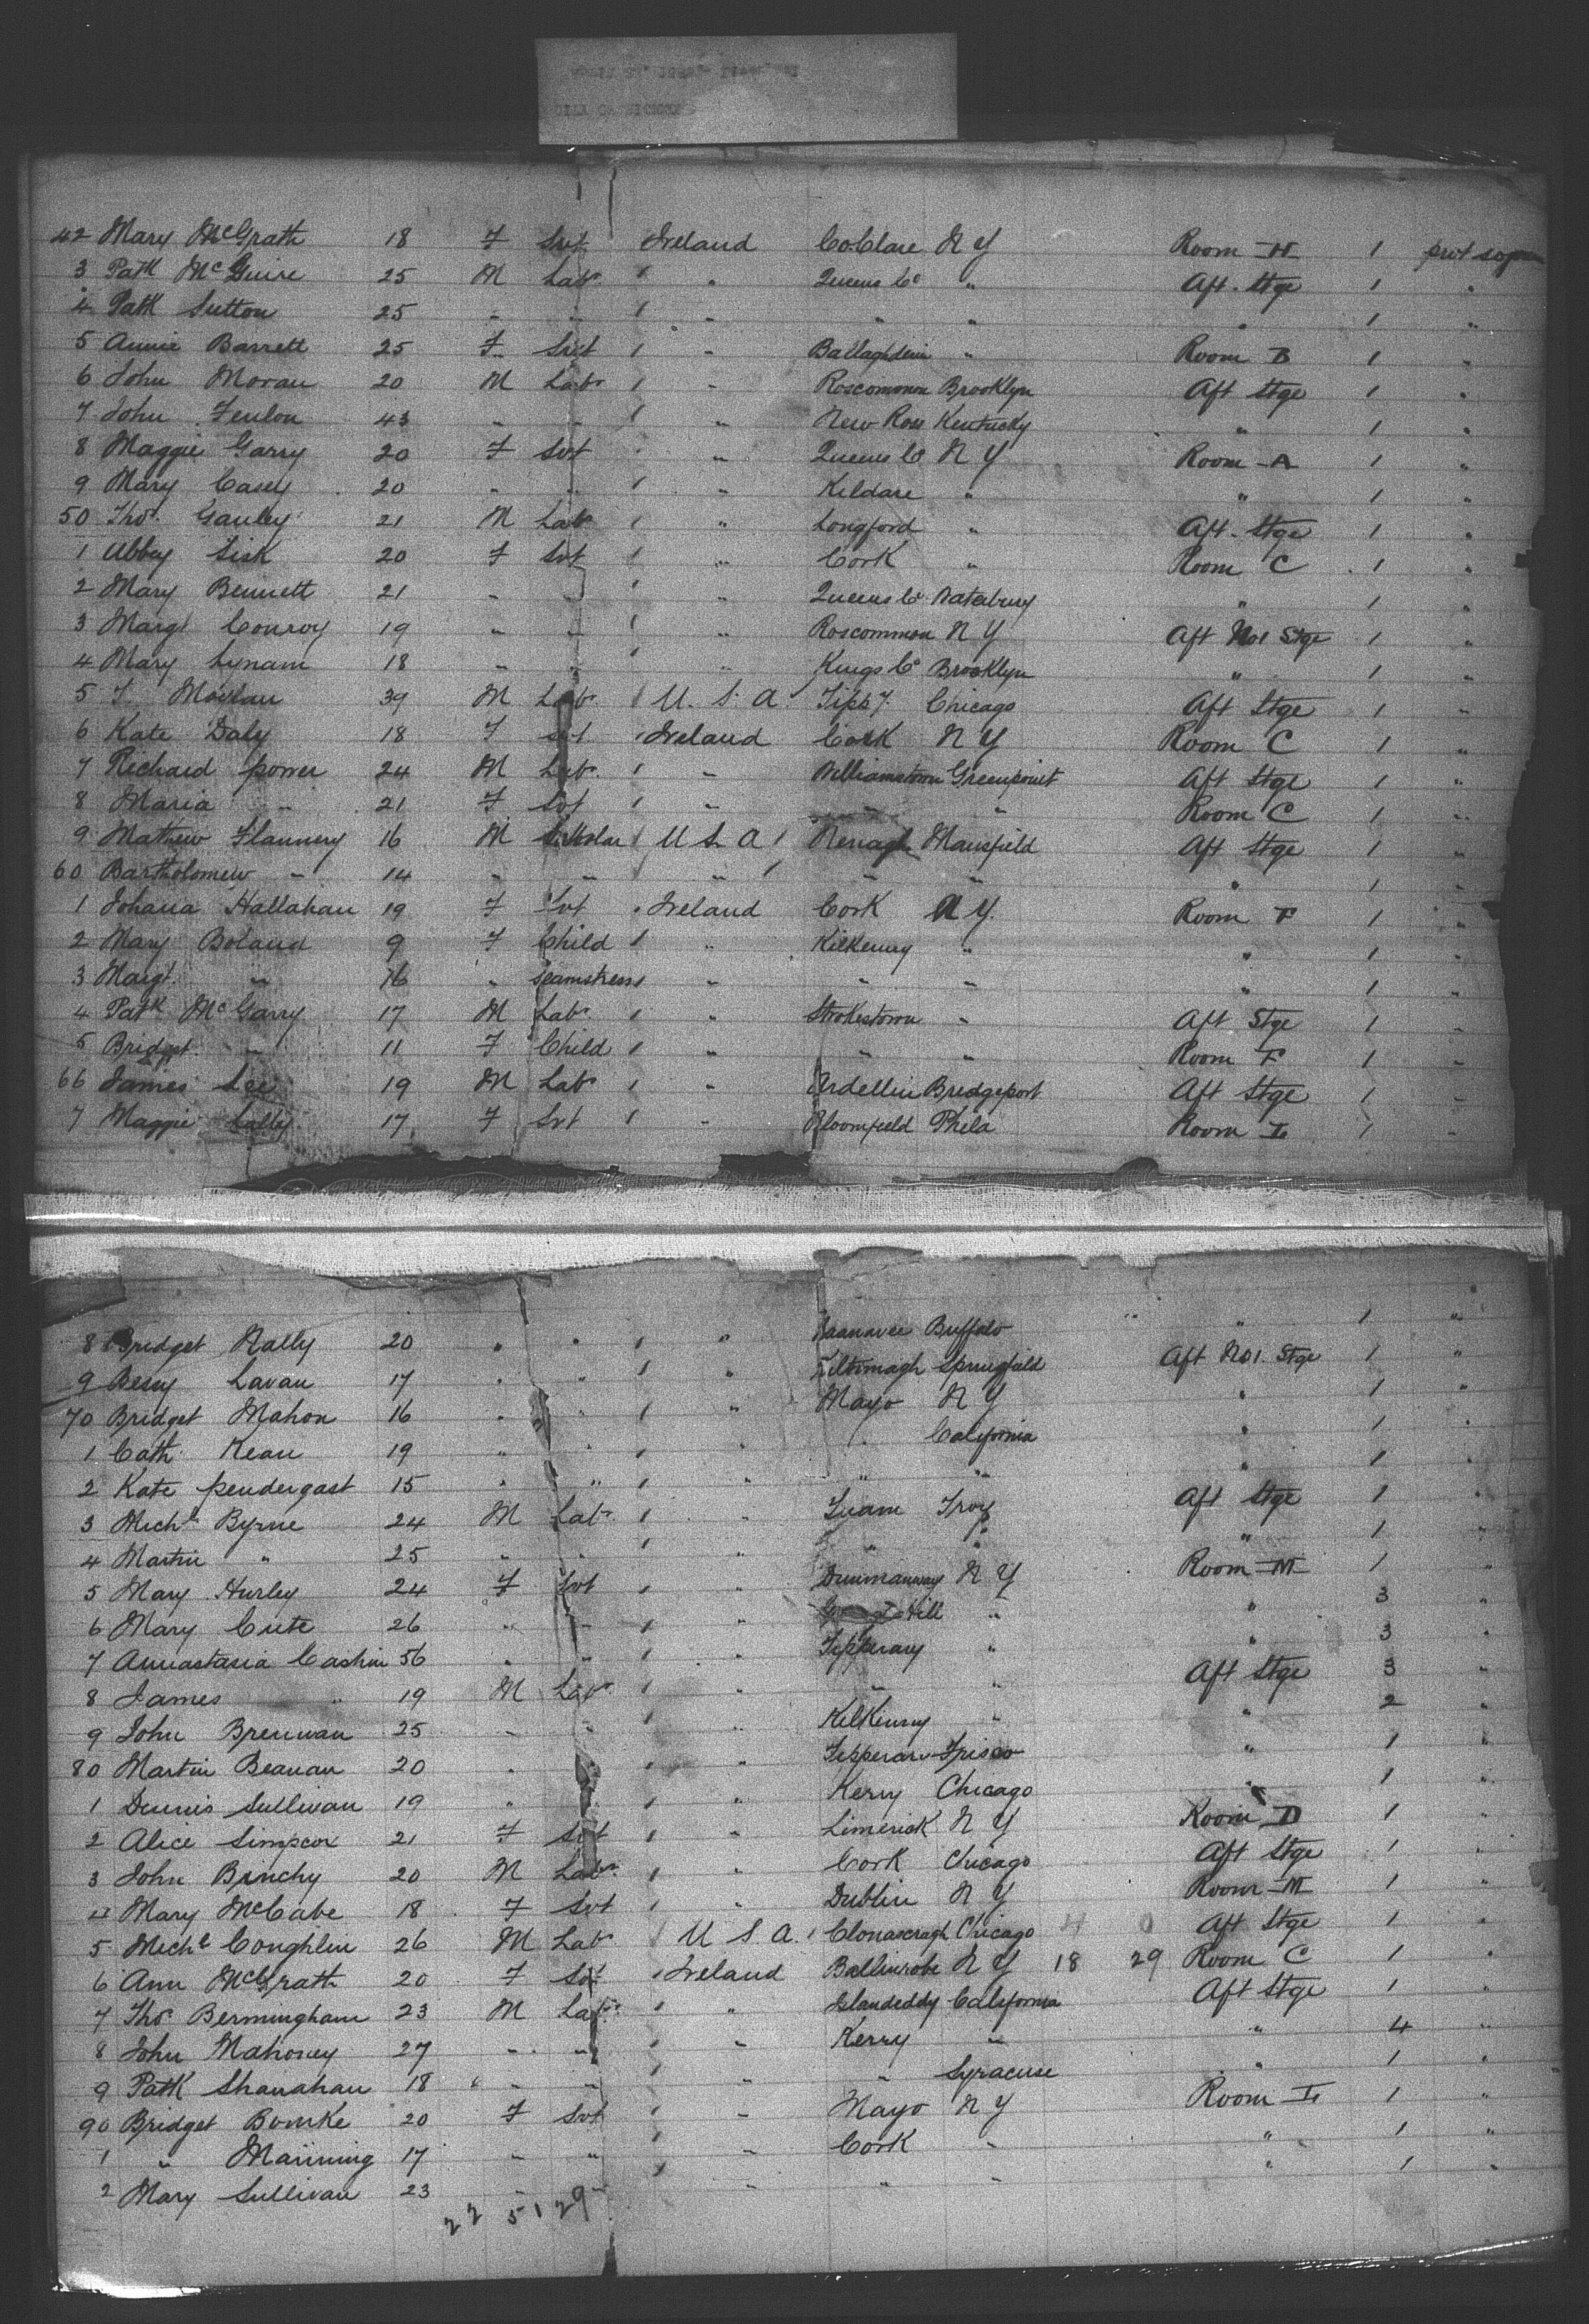 42 Mary McGrath 18 F Svt Ireland Co Clare N Y Room H 1 prot sojn
3 Patk McGuire 25 M Labr 1 " Queens Co " Aft. Stge 1 "
4 Patk Sutton 25 " " 1 " " " " 1 "
5 Annie Barrett 25 F Svt 1 " Room B 1 "
6 John Moran 20 M Labr 1 " Roscommon Brooklyn Aft Stge 1 "
7 John Fenlon 43 " " 1 " New Ross Kentucky " 1 "
8 Maggie Garry 20 F Svt " Queens Co N Y Room A 1 "
9 Mary Casey 20 " " 1 " Kildare " " 1 "
50 Thos. Gauley 21 M Labr 1 " Longford " Aft. Stge 1 "
1 Abbey Sisk 20 F Svt 1 " Cork " Room C 1 "
2 Mary Bennett 21 " " 1 " Queens Co Waterbury " 1 "
3 Margt Conroy 19 " " 1 " Roscommon N Y Aft No1 Stge 1 "
4 Mary Lynam 18 " " 1 " Kings Co Brooklyn " 1 "
5 T. 39 M Labr 1 U. S. A. Tippy. Chicago Aft Stge 1 "
6 Kate Daly 18 F Svt Ireland Cork N Y Room C 1 "
7 Richard power 24 M Labr. 1 " Williamstown Greenpoint Aft Stge 1 "
8 Maria " 21 F Svt 1 " " " Room C 1 "
9 Mathew Flannery 16 M Scholar 1 U S A 1 Nenagh Mansfield Aft Stge 1 "
60 Bartholomew " 14 " " " 1 " " " 1 "
1 Johana Hallahan 19 F Svt Ireland Cork N Y. Room F 1 "
2 Mary Boland 9 F Child 1 " Kilkenny " " 1 "
3 Margt. " 16 " Seamstress 1 " " " " 1 "
4 Patk McGarry 17 M Labr. 1 " Strokestown " Aft Stge 1 "
5 Bridget " 11 F Child 1 " " " Room F 1 "
66 James Lee 19 M Labr 1 " Bridgeport Aft Stge 1 "
7 Maggie Lally 17 F Svt 1 " Bloomfield Phila Room L 1 "
8 Bridget Nally 20 " " 1 " Buffalo " 1 "
9 Bessy Lavan 17 " " 1 " Kiltimagh Springfield Aft No1. Stge 1 "
70 Bridget Mahon 16 " " 1 " Mayo N Y " 1 "
1 Cath. Kean 19 " " 1 " " California " 1 "
2 Kate pendergast 15 " " 1 " " " " 1 "
3 Michl Byrne 24 M Labr. 1 " Tuam Troy Aft Stge 1 "
4 Martin " 25 " " 1 " " " " 1 "
5 Mary Hurley 24 F Svt 1 " Dunmanway N Y Room M 1 "
6 Mary Cute 26 " " 1 " Hill " " 3 "
7 Annastasia Cashin 56 " " 1 " Tipperary " " 3 "
8 James " 19 M Labr. 1 " " " Aft Stge 3 "
9 John Brennan 25 " " 1 " Kilkenny " " 2 "
80 Martin Beanan 20 " " 1 " Tipperary Frisco " 1 "
1 Dennis Sullivan 19 " " 1 " Kerry Chicago " 1 "
2 Alice Simpcox 21 F Svt 1 " Limerick N Y Room D 1 "
3 John Binchy 20 M Labr 1 " Cork Chicago Aft Stge 1 "
4 Mary McCabe 18 F Svt 1 " Dublin N Y Room M 1 "
5 Michl Coughlin 26 M Labr 1 U S. A. 1 Chicago Aft Stge 1 "
6 Ann McGrath 20 F Svt Ireland Ballinrobe N Y 18 29 Room C 1 "
7 Thos Bermingham 23 M Labr. 1 " California Aft Stge 1 "
8 John Mahoney 27 " " 1 " Kerry " " 4 "
9 Patk Shanahan 18 " " 1 " " Syracuse " 1 "
90 Bridget Bourke 20 F Svt 1 " Mayo N Y Room L 1 "
1 " Manning 17 " " 1 " Cork " " 1 "
2 Mary Sullivan 23 " " 1 " " " " 1 "
22 5 1 29